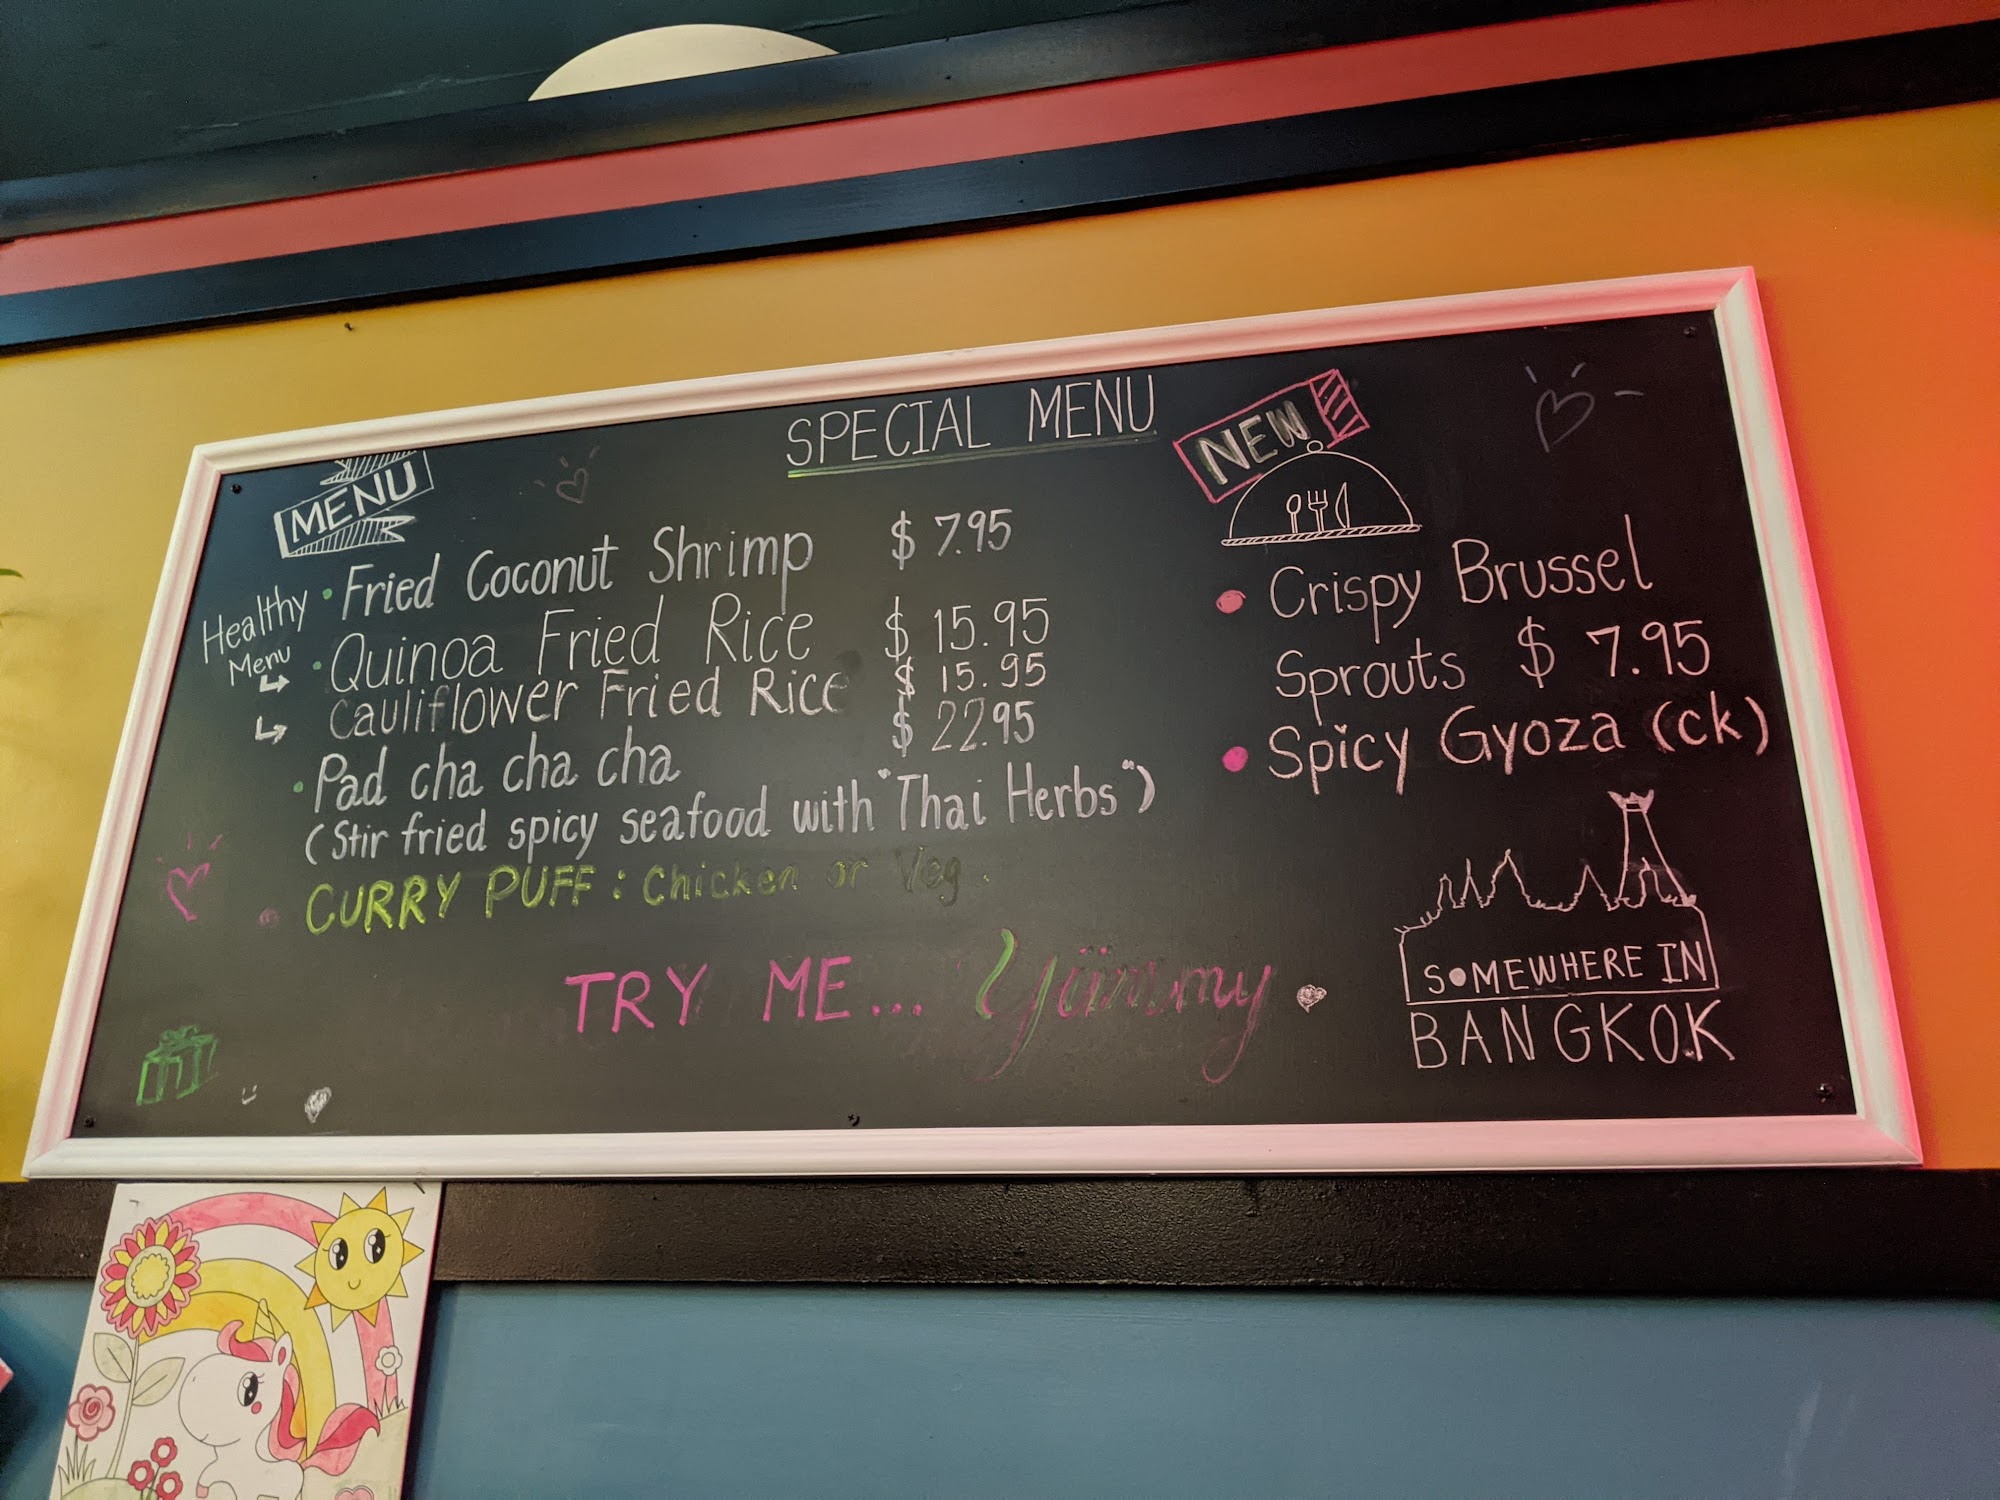 SPECIAL MENU
MENU
Healthy
Menu
• Fried Coconut Shrimp $ 7.95
• Quinoa Fried Rice $ 15.95
Cauliflower Fried Rice $ 15.95
• Pad cha cha cha $ 22.95
(Stir fried spicy seafood with "Thai Herbs")
• CURRY PUFF : Chicken or Veg.
TRY ME... Yummy
NEW
• Crispy Brussel
Sprouts $ 7.95
• Spicy Gyoza (ck)
SOMEWHERE IN
BANGKOK